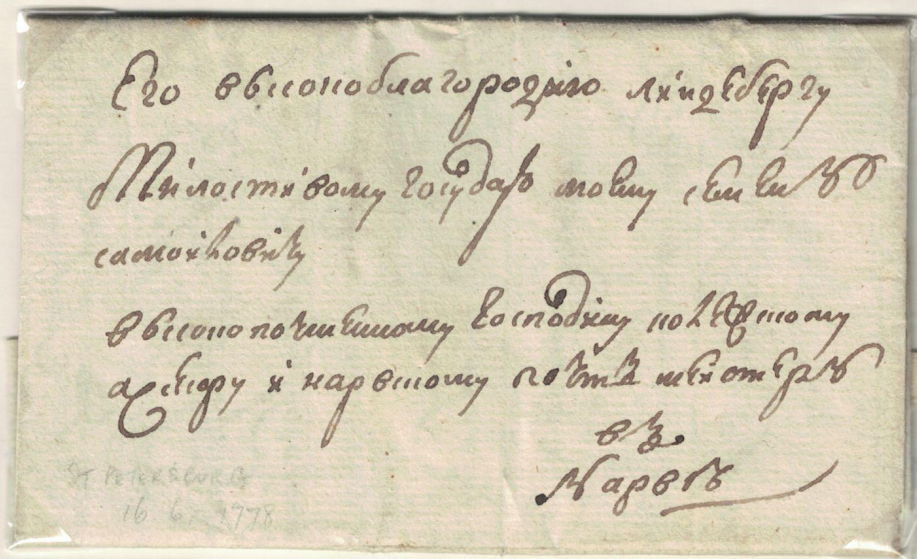 Его высокоблагородию линдебергу
Милостивому Государю моему
самойловичу
высокопочтенному Господину
и нарвскому почтмейстеру
въ
Нарве
ST PETERSBURG
16 6. 1778